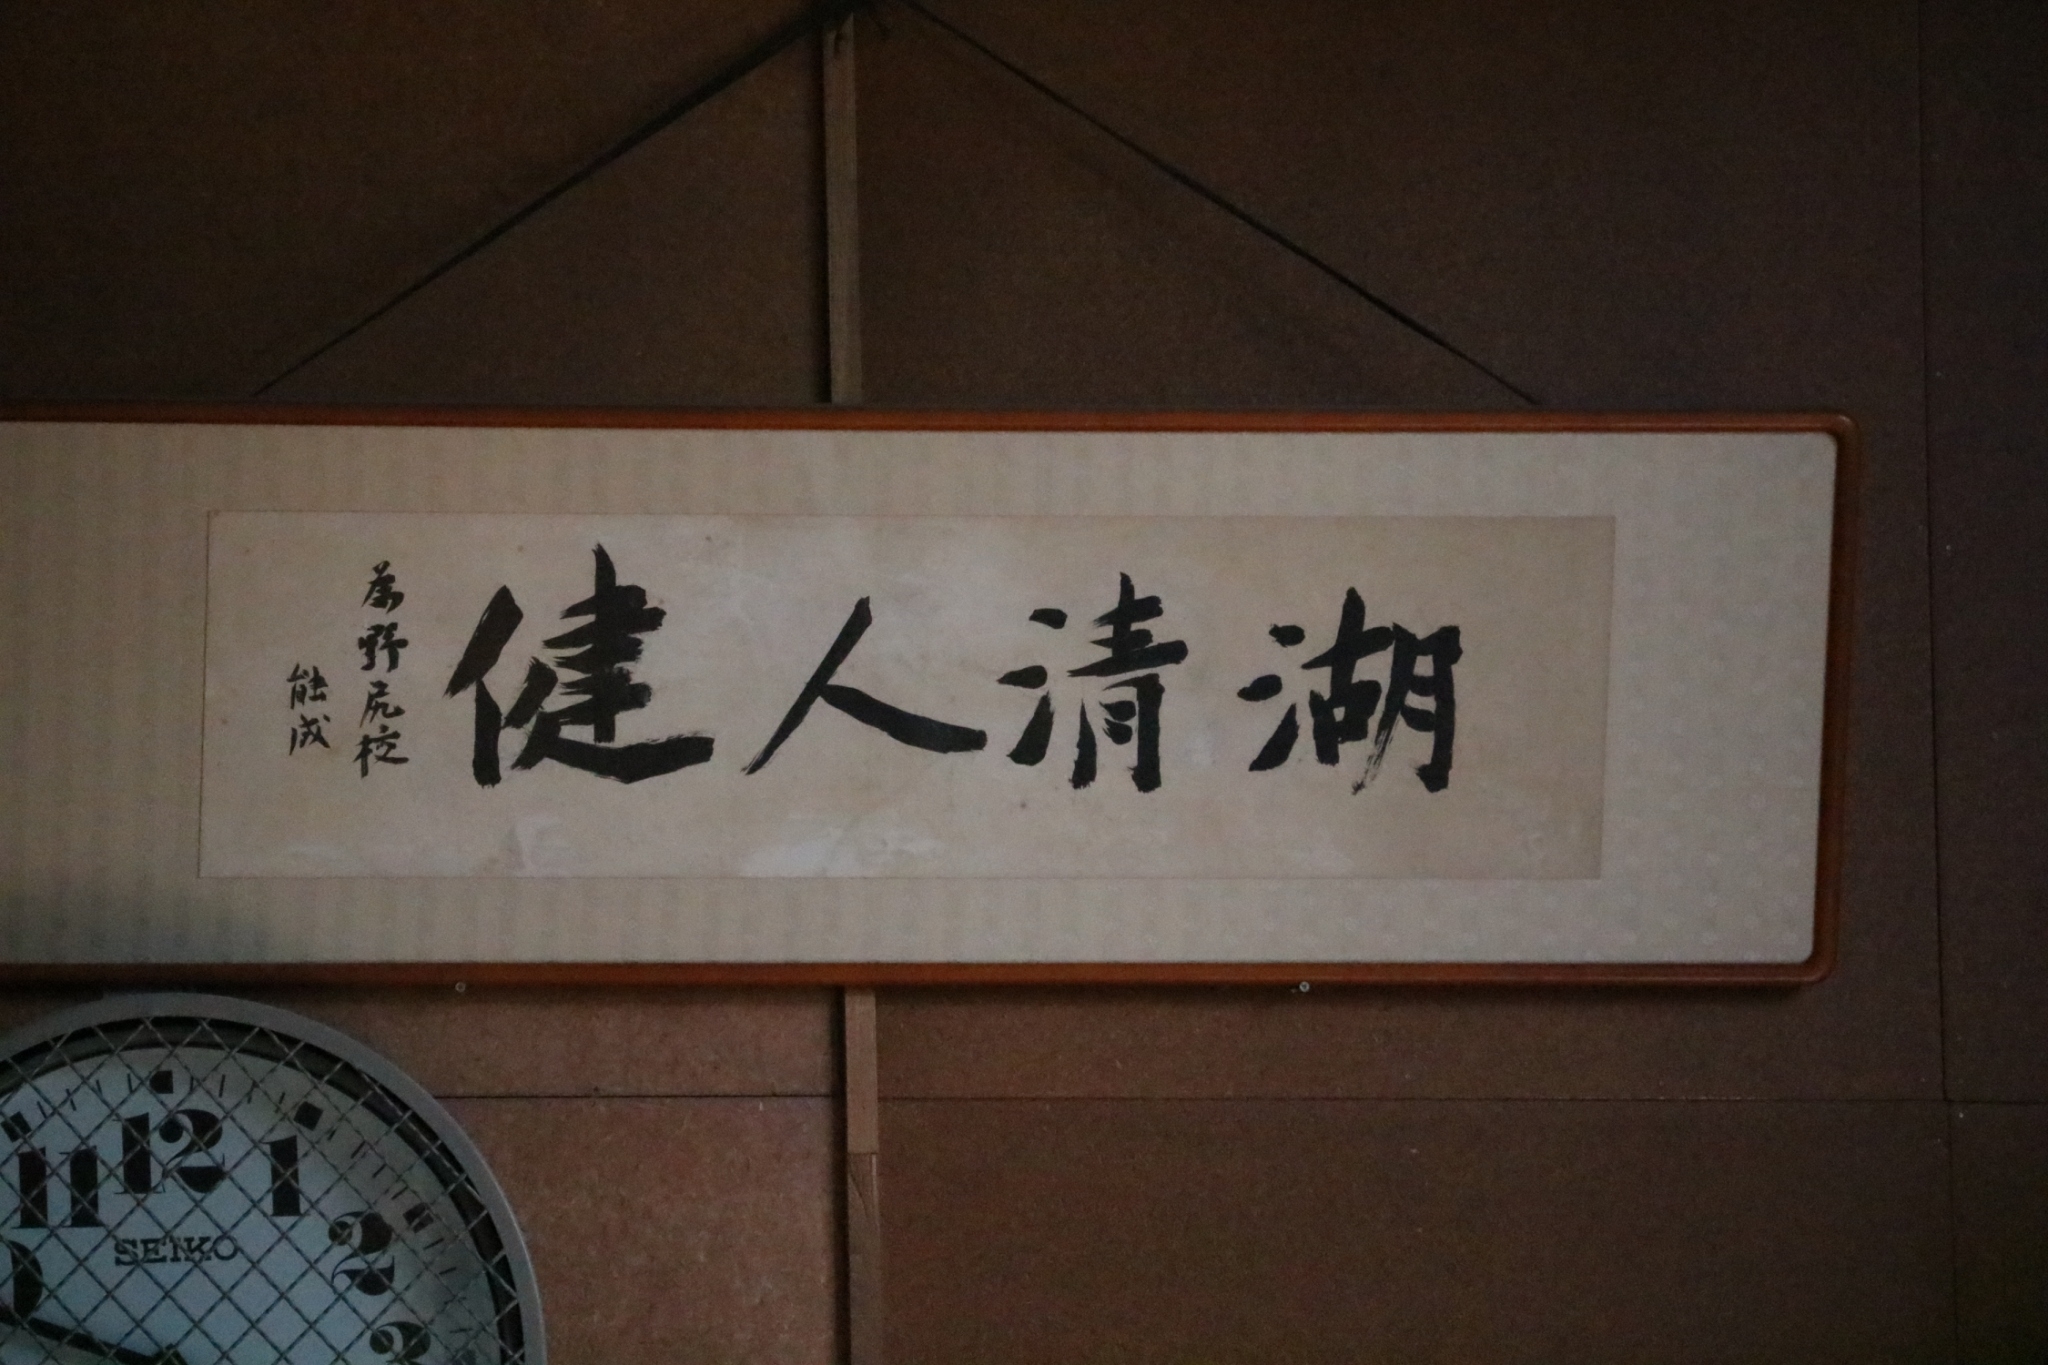 湖清人健
為野尻校
能成
12
11
1
2
SEIKO
3